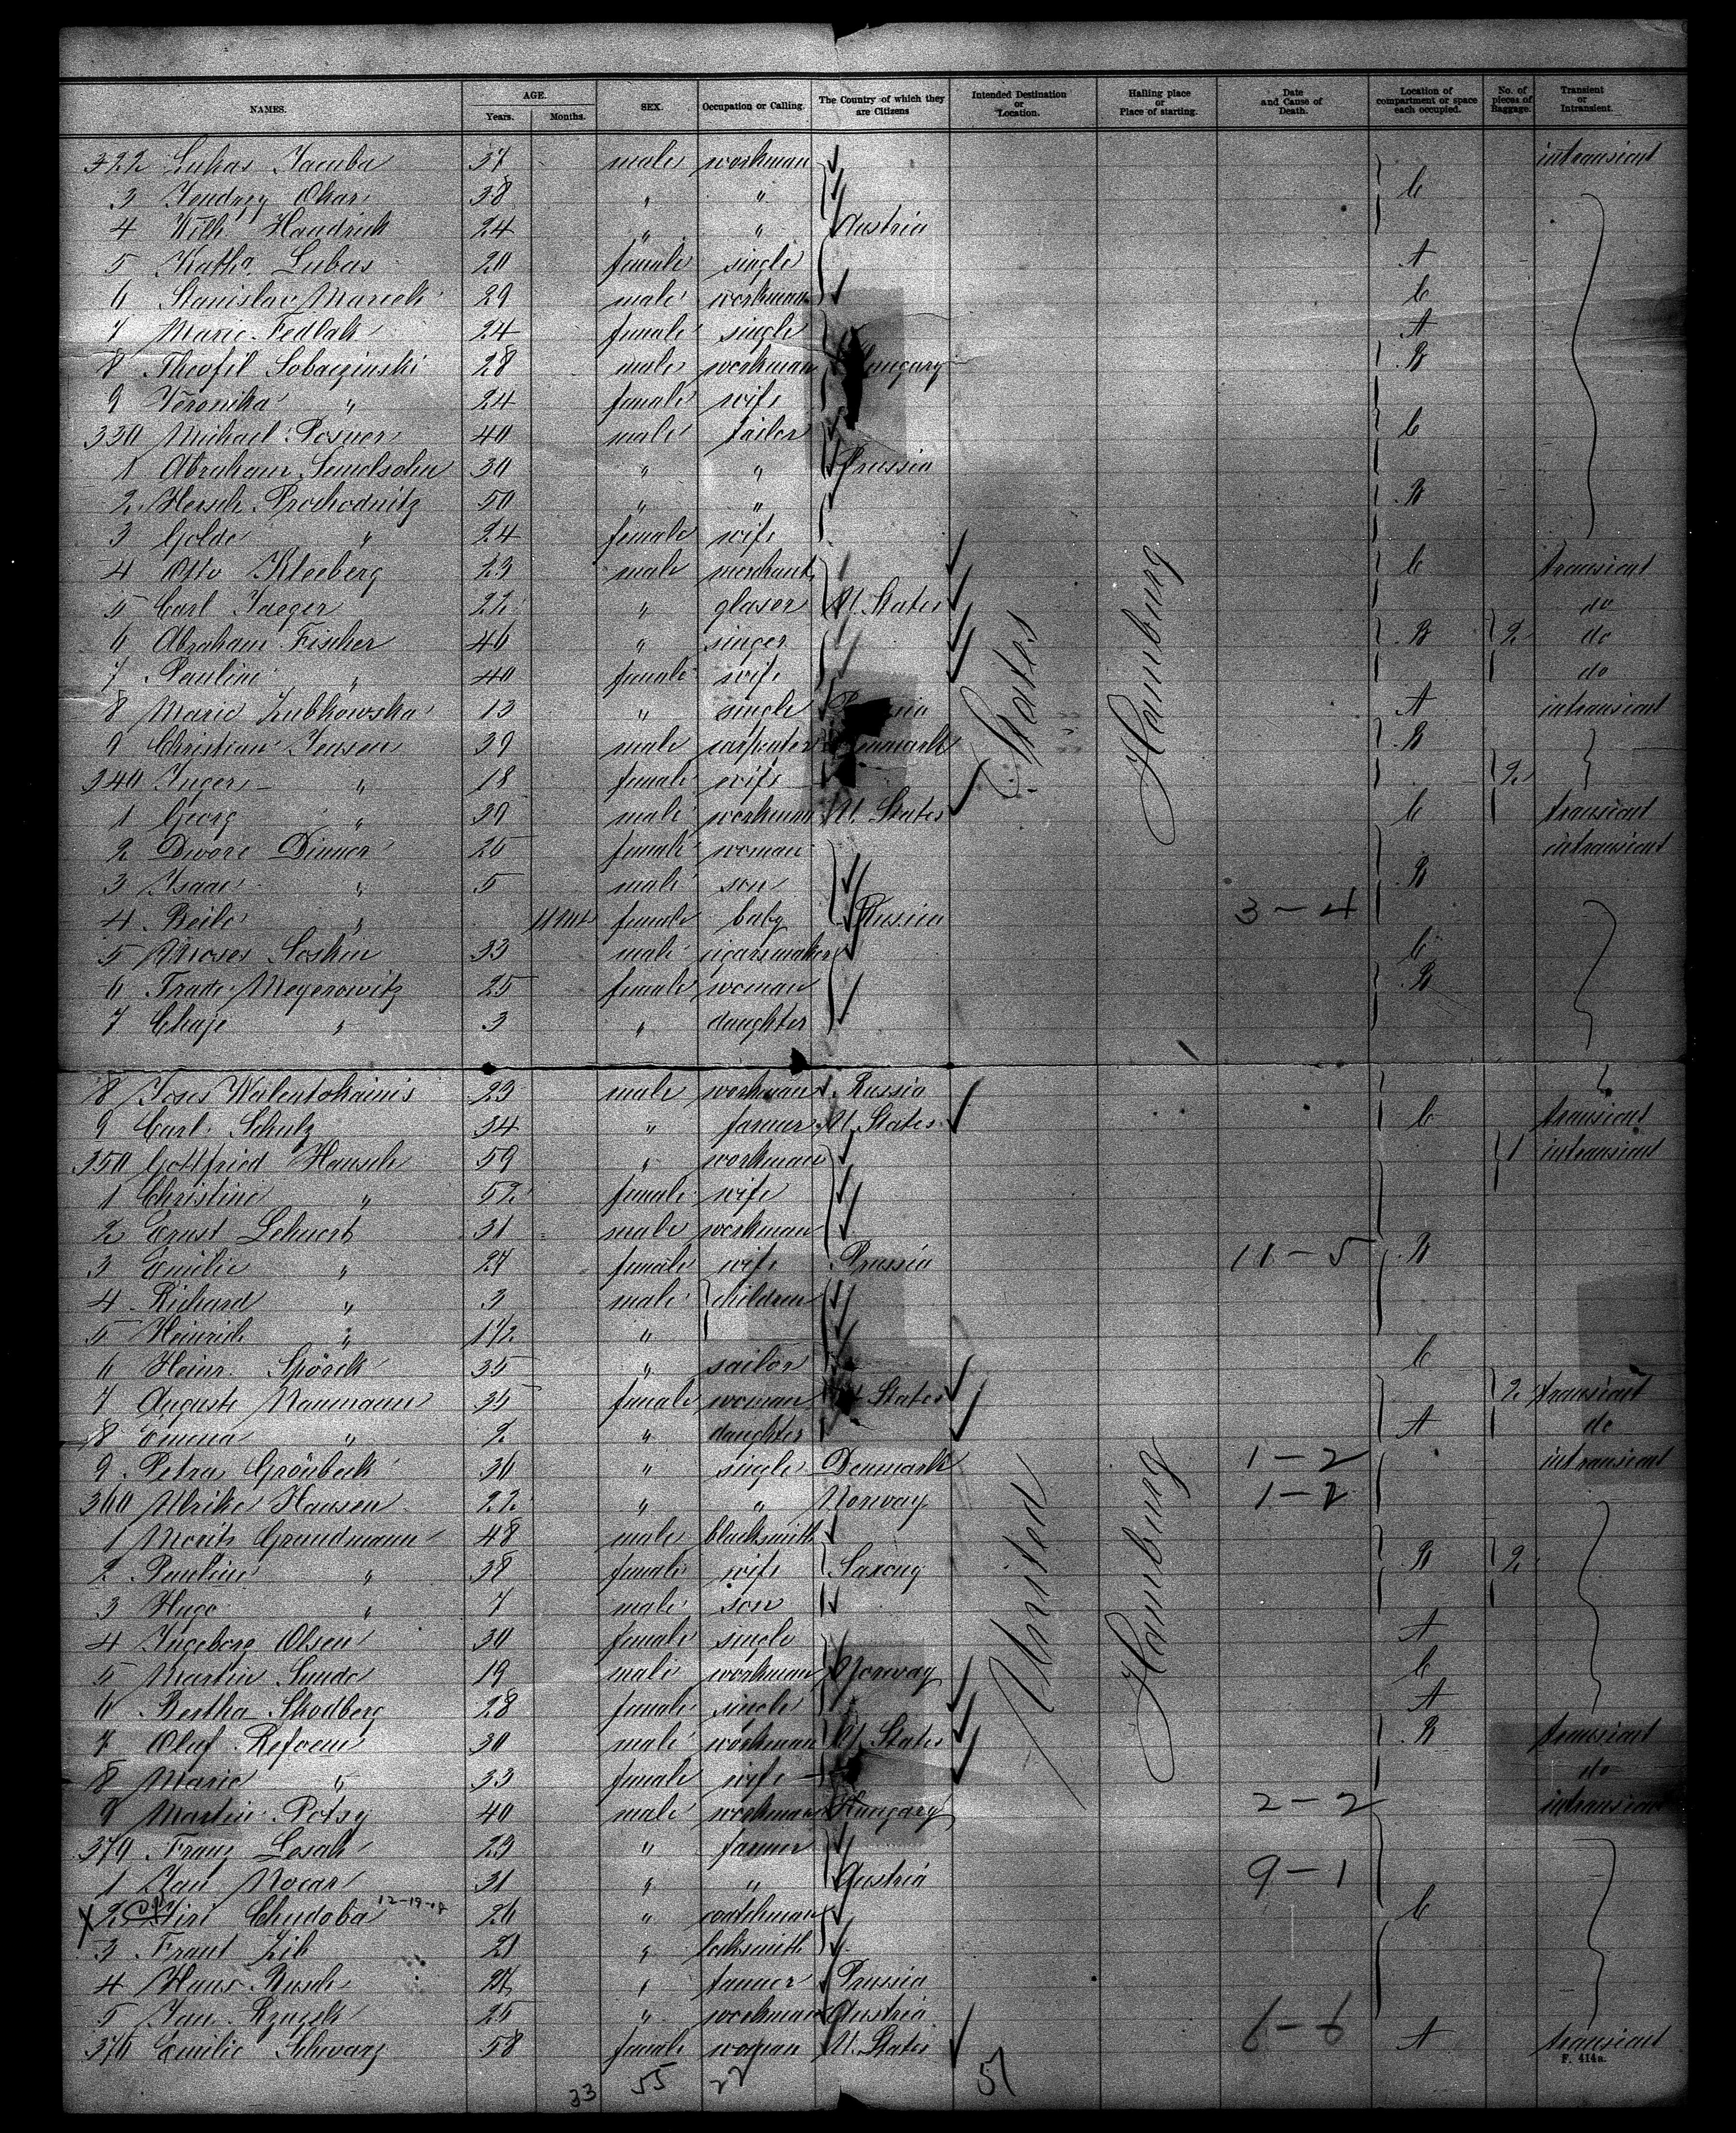 NAMES. AGE. Years. Months. SEX. Occupation or Calling. The Country of which they are Citizens Intended Destination or Location. Hailing place or Place of starting. Date and Cause of Death. Location of compartment or space each occupied. No. of pieces of Baggage. Transient or Intransient.
322 Lukas Jacuba 37 male workman intransient
3 Jendrzy 38 " " C
4 Wilh. Handrick 24 " " Austria
5 Kath. Lubas 20 female single A
6 Stanislav Mareck 29 male workman C
7 Marie Fedlak 24 female single A
8 Theofil Sobaczinski 28 male workman Hungary B
9 Veronika " 24 female wife
330 Michael Posner 40 male tailor C
1 Abraham 30 " " Prussia
2 Hersch Prochodnitz 50 " " B
3 Golde " 24 female wife
4 Otto Kleeberg 23 male merchant C transient
5 Carl Jaeger 22 " glaser U. States do
6 Abraham Fischer 46 " singer B 2 do
7 Pauline " 40 female wife do
8 Marie Zubkowska 13 " single A intransient
9 Christian Jensen 39 male carpenter Denmark B
340 Inger " 18 female wife 2
1 Georg " 39 male workman U. States C transient
2 Dwore Dimer 26 female woman intransient
3 Isaac " 5 male son B
4 Beile " 11 Mt female baby Russia 3-4
5 Moses Soskin 33 male cigarsmaker C
6 Trade Meyerowitz 25 female woman B
7 Chaje " 3 " daughter
8 Joses Walentokainis 23 male workman Russia
9 Carl Schulz 34 " farmer U. States C transient
350 Gottfried Hausch 59 " workman 1 intransient
1 Christine " 52 female wife
2 Ernst Lehnert 31 male workman
3 Emilie " 27 female wife Prussia 11-5 B
4 Richard " 3 male children
5 Heinrich " 1 1/2 "
6 Heinr. Spörck 35 " sailor C
7 Auguste Naumann 35 female woman U. States 2 transient
8 Emma " 2 " daughter A do
9 Petra Grönbeck 36 " single Denmark 1-2 intransient
360 Ulrike Hansen 22 " " Norway 1-2
1 Moritz Grundmann 48 male blacksmith
2 Pauline " 38 female wife Saxony B 2
3 Hugo " 7 male son
4 Ingeborg Olsen 30 female single A
5 Martin Sunde 19 male workman Norway C
6 Bertha Skodberg 28 female single A
7 Oluf Refoem 30 male workman U. States B transient
8 Marie " 33 female wife do
9 Martin Potsy 40 male workman Hungary 2-2 intransient
370 Franz Lesak 23 " farmer
1 Jan Nocar 31 " " Austria 9-1
X 2 Jiri Chudoba 12-19-17 26 " watchman C
3 Frant Zib 21 " locksmith
4 Hans Rusch 27 " farmer Prussia
5 Jan 25 " workman Austria
376 Emilie Schwarz 58 female woman U. States 6-6 A transient
United States
Hamburg
Hamburg
F. 414a.
33 55 22 51